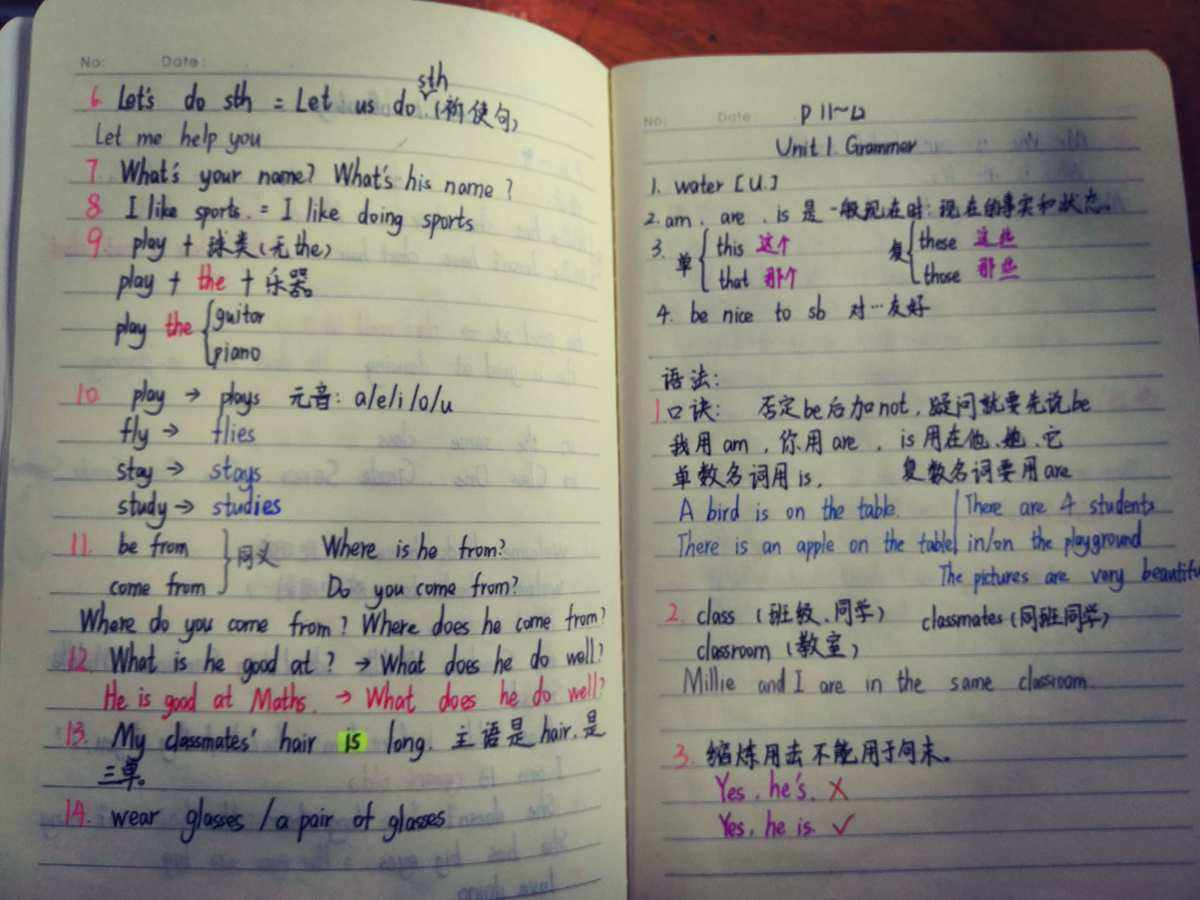 No: Date:
6. Let's do sth = Let us do sth (祈使句)
Let me help you
7. What's your name? What's his name?
8. I like sports. = I like doing sports
9. play + 球类(无the)
play + the + 乐器
play the { guitar
piano
10. play → plays 元音: a/e/i/o/u
fly → flies
stay → stays
study → studies
11. be from } 同义 Where is he from?
come from Do you come from?
Where do you come from? Where does he come from?
12. What is he good at? → What does he do well?
He is good at Maths. → What does he do well?
13. My classmates' hair is long. 主语是hair.是
三单。
14. wear glasses / a pair of glasses
No: Date P 11~12
Unit 1. Grammer
1. water [U.]
2. am . are . is 是一般现在时:现在的事实和状态。
3. 单 { this 这个 复 { these 这些
that 那个 those 那些
4. be nice to sb 对…友好
语法:
1.口诀: 否定be后加not, 疑问就要先说be
我用am, 你用are, is用在他、她、它
单数名词用is, 复数名词要用are
A bird is on the table. There are 4 students
There is an apple on the table. in/on the playground
The pictures are very beautifu
2. class (班级、同学) classmates (同班同学)
classroom (教室)
Millie and I are in the same classroom.
3. 缩炼用法不能用于句末。
Yes, he's. ✗
Yes, he is. ✓